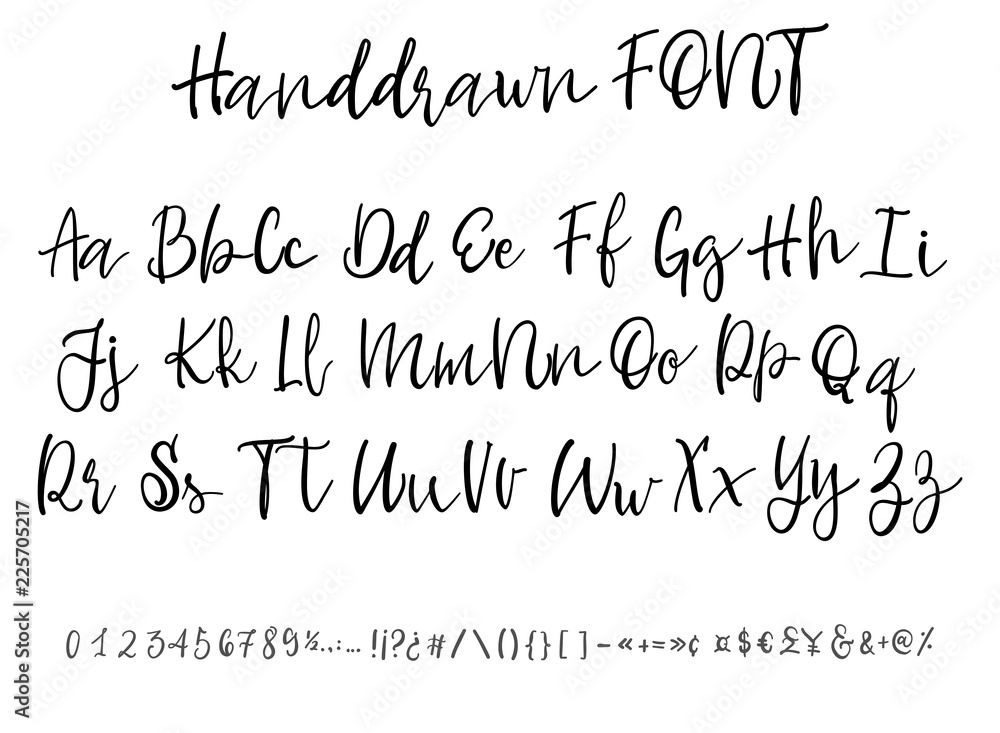 Handdrawn FONT
Aa Bb Cc Dd Ee Ff Gg Hh Ii
Jj Kk Ll Mm Nn Oo Pp Qq
Rr Ss Tt Uu Vv Ww Xx Yy Zz
0 1 2 3 4 5 6 7 8 9 ½ . , : ; … ! ¡ ? ¿ # / \ ( ) { } [ ] - « + = » ¢ ¤ $ € £ ¥ & & + @ %
Adobe Stock | #225705217